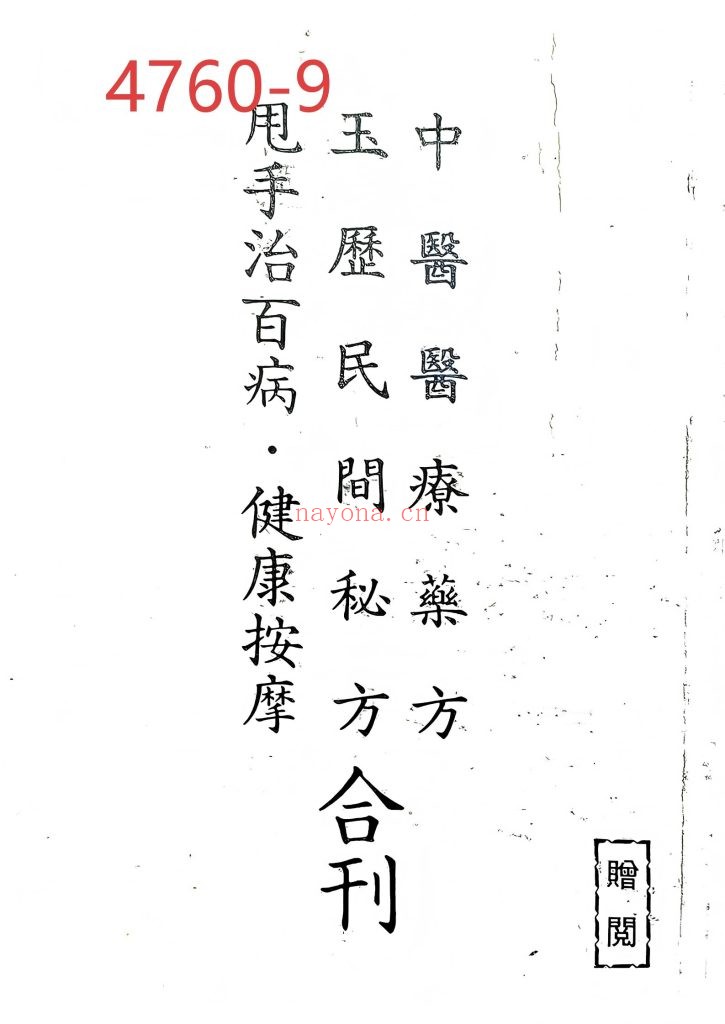 4760-9
中醫醫療藥方
玉歷民間秘方
甩手治百病·健康按摩
合刊
贈閱
nayona.cn